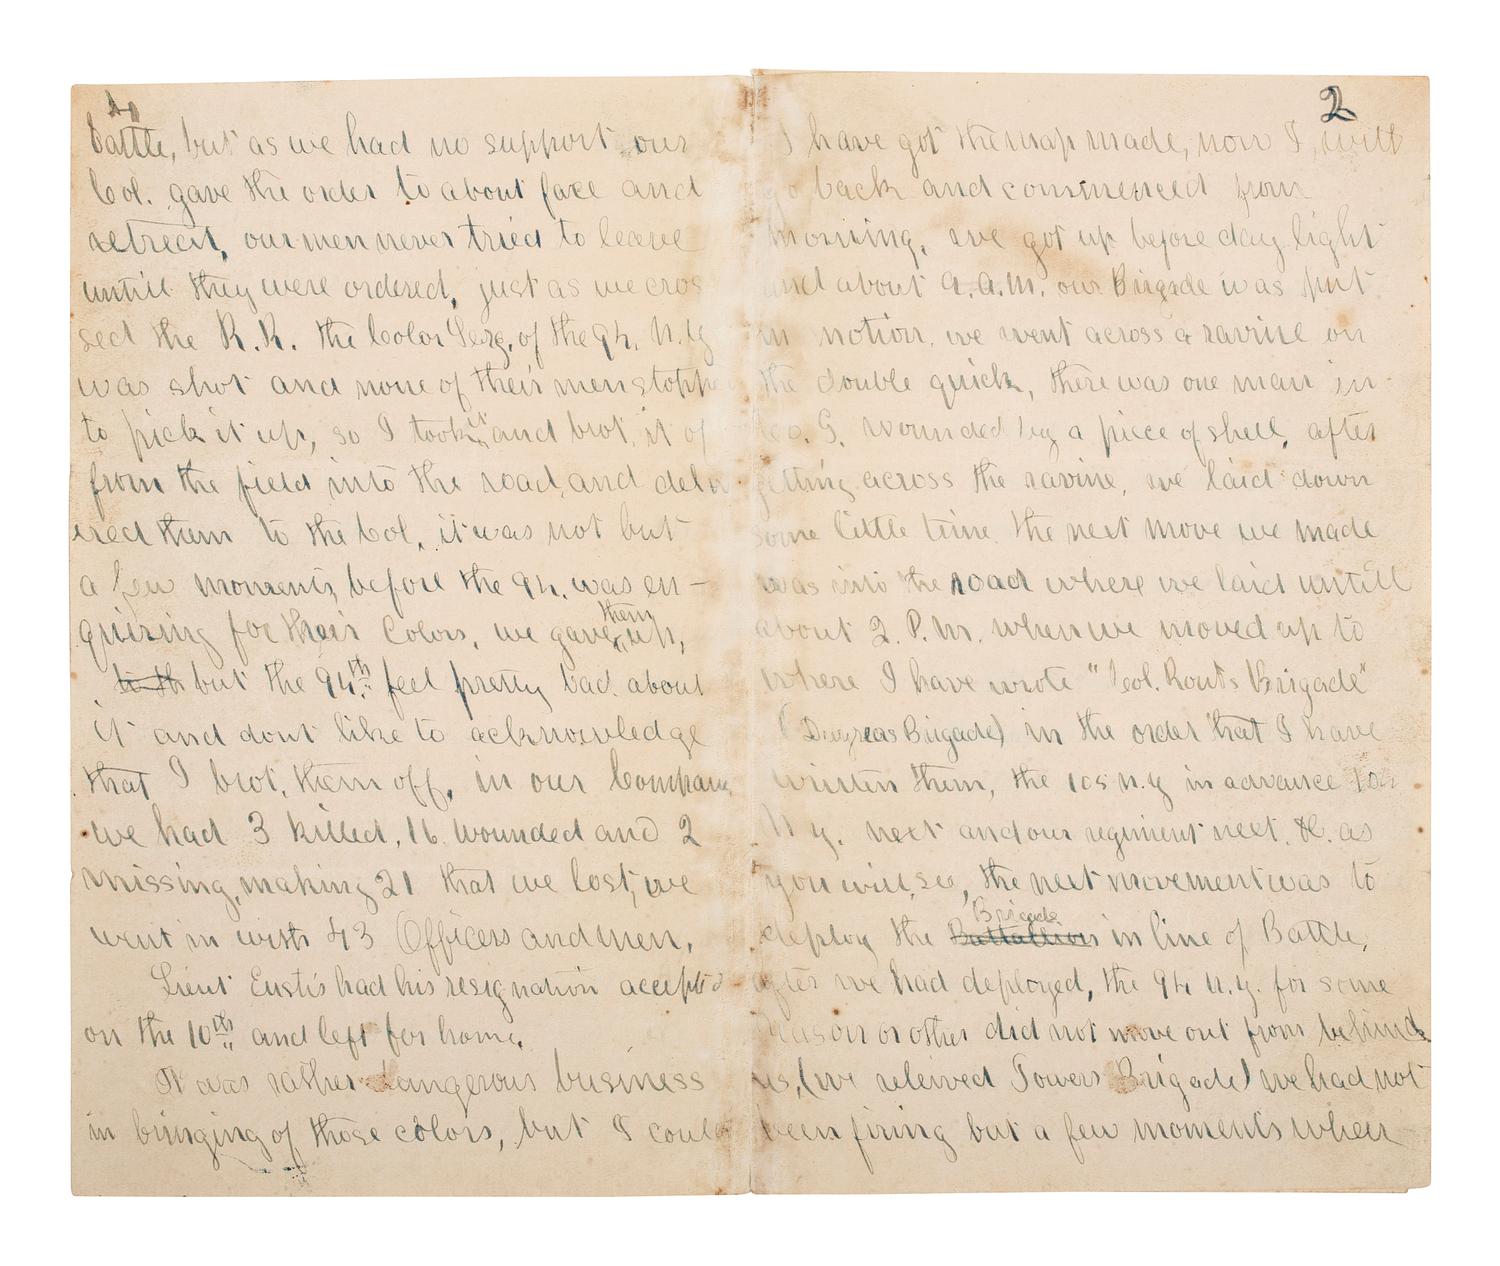 4
battle, but as we had no support our
Col. gave the order to about face and
retreat, our men never tried to leave
untill they were ordered, just as we cros
sed the R.R. the Color Serg. of the 94. N.Y
was shot and none of their men stopp
to pick it up, so I took it and brot. it of
from the field into the road, and deliv
ered them to the Col, it was not but
a few moments before the 94. was en-
quiering for their Colors, we gave them up,
but the 94th feel pretty bad about
it and dont like to acknowledge
that I brot. them off, in our Company
we had 3 killed, 16 wounded and 2
missing, making 21 that we lost, we
went in with 43 Officers and men,
Lieut Eustis had his resignation accepted
on the 10th and left for home,
It was rather dangerous business
in bringing of those colors, but I could
2
I have got the map made, now I, will
go back and commenced from
morning, we got up before day light
and about 9. a.m. our Brigade was put
in motion, we went across a ravine on
the double quick, there was one man in
Co. G. wounded by a piece of shell, after
getting across the ravine, we laid down
some little time. the next move we made
was into the road where we laid untill
about 2. P.M. when we moved up to
where I have wrote "Col. Roots Brigade"
(Duryeas Brigade) in the order that I have
written them, the 105 N.Y in advance
N Y. next and our regiment next. &c. as
you will see, the next movement was to
deploy the Battallion Brigade in line of Battle,
after we had deployed, the 94 N.Y. for some
reason or other did not move out from behind
us, (we releived Towers Brigade) we had not
been firing but a few moments when